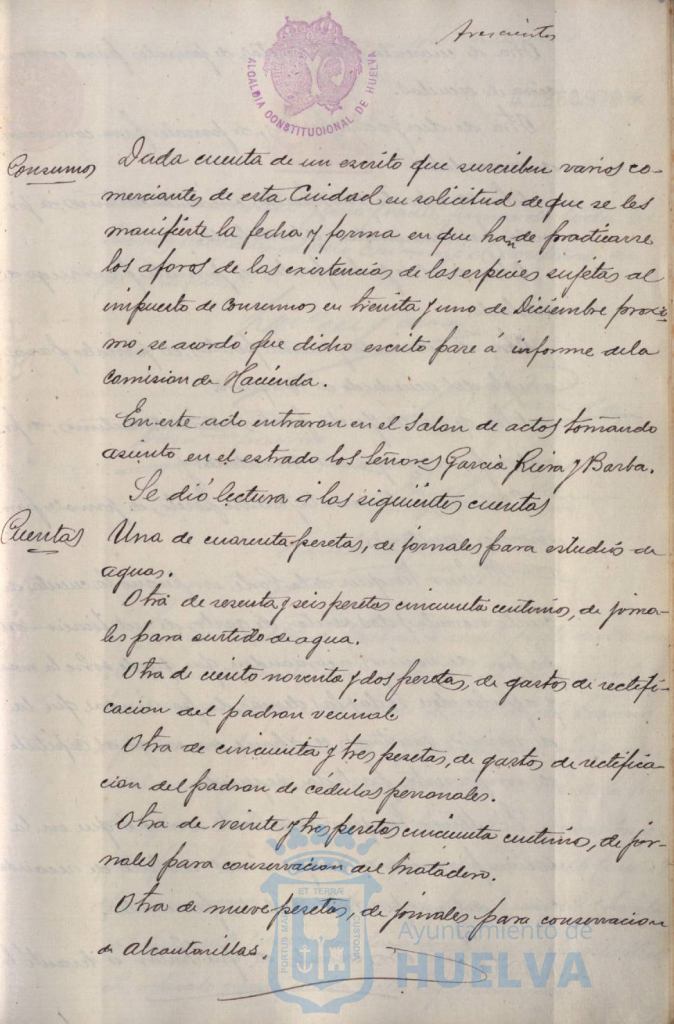 Trescientos
ALCALDIA CONSTITUCIONAL DE HUELVA
Consumos
Dada cuenta de un escrito que suscriben varios co-
merciantes de esta Ciudad en solicitud de que se les
manifieste la fecha y forma en que han de practicarse
los aforos de las existencias de las especies sujetas al
impuesto de consumos en treinta y uno de Diciembre proxi-
mo, se acordó que dicho escrito pase á informe de la
comision de Hacienda.
En este acto entraron en el salon de actos tomando
asiento en el estrado los señores Garcia Riera y Barba.
Se dió lectura á las siguientes cuentas
Cuentas
Una de cuarenta pesetas, de jornales para estudio de
aguas.
Otra de sesenta y seis pesetas cincuenta centimos, de jorna-
les para surtido de agua.
Otra de ciento noventa y dos pesetas, de gastos de rectifi-
cacion del padron vecinal
Otra de cincuenta y tres pesetas, de gastos de rectifica-
cion del padron de cédulas personales.
Otra de veinte y tres pesetas cincuenta centimos, de jor-
nales para conservacion del Matadero.
Otra de nueve pesetas, de jornales para conservacion
de Alcantarillas.
PORTUS MARIS ET TERRÆ CUSTODIA
Ayuntamiento de
HUELVA